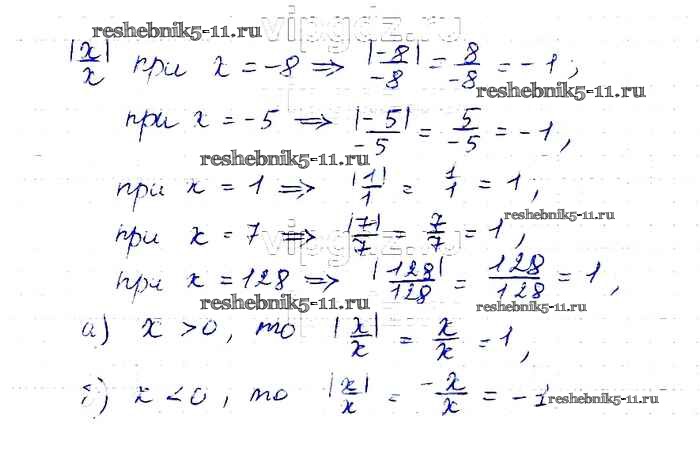 reshebnik5-11.ru
vipgdz.ru
|x|/x при x = -8 ⇒ |-8|/-8 = 8/-8 = -1;
reshebnik5-11.ru
при x = -5 ⇒ |-5|/-5 = 5/-5 = -1,
reshebnik5-11.ru
при x = 1 ⇒ |1|/1 = 1/1 = 1;
reshebnik5-11.ru
при x = 7 ⇒ |7|/7 = 7/7 = 1,
vipgdz.ru
при x = 128 ⇒ |128|/128 = 128/128 = 1,
reshebnik5-11.ru reshebnik5-11.ru
а) x > 0, то |x|/x = x/x = 1,
б) x < 0, то |x|/x = -x/x = -1
reshebnik5-11.ru